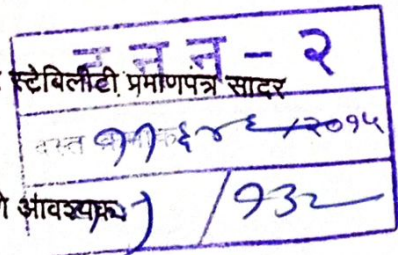 न न न - २
स्टेबिलीटी प्रमाणपत्र सादर
दस्त क्रमांक ११६४६/२०१५
आवश्यक /१३२